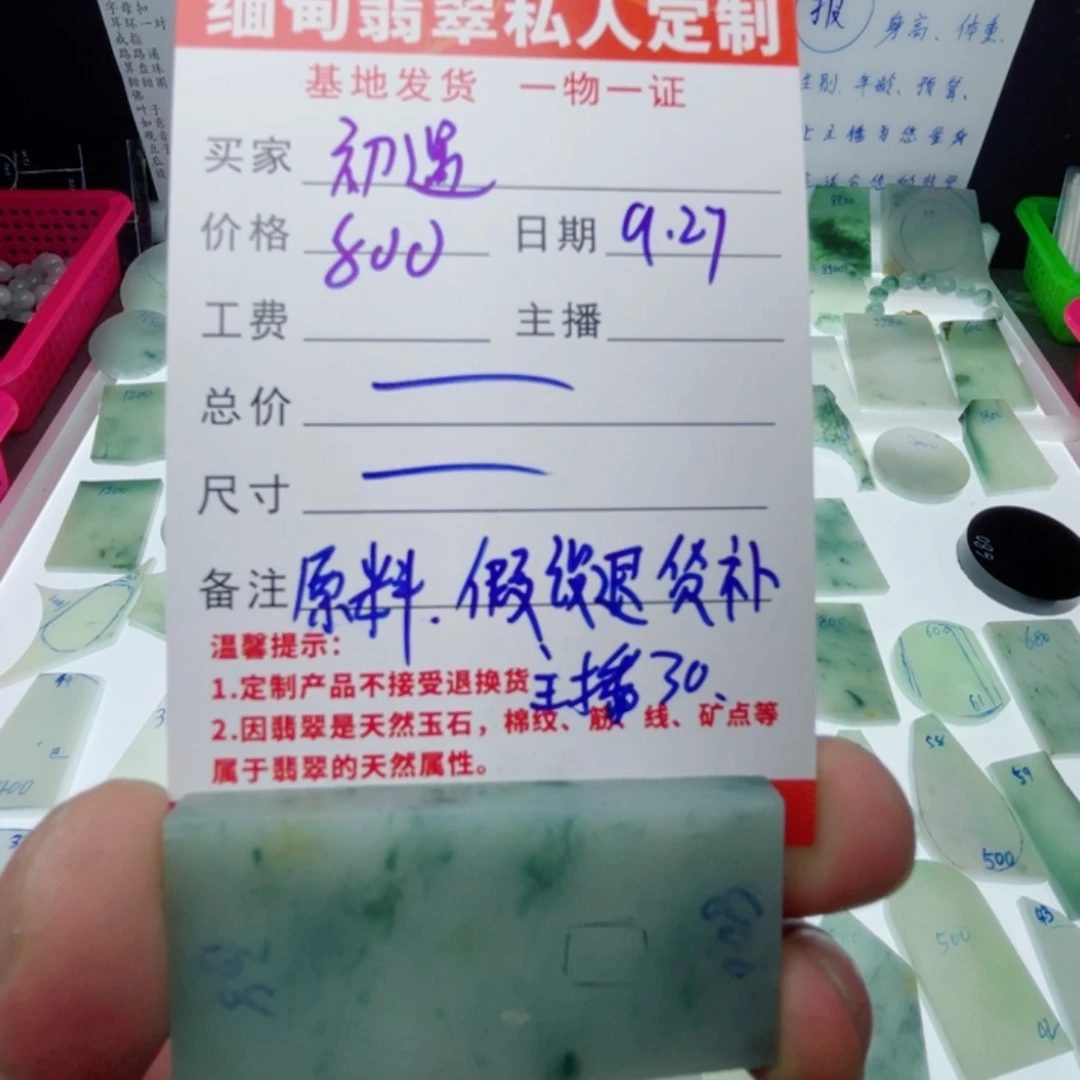 缅甸翡翠私人定制
基地发货 一物一证
买家 初遇
价格 800 日期 9.27
工费 主播
总价
尺寸
备注 原料.假设退货补
主播30、
温馨提示：
1.定制产品不接受退换货
2.因翡翠是天然玉石，棉纹、筋、线、矿点等
属于翡翠的天然属性。
字母扣
耳环一对
戒指
路路通
算盘珠
佛
叶子
如意
报
身高、体重、
性别、年龄、预算、
主播为您量身
8800
2280
600
1200
1200
680
800
600
61
680
58
59
500
500
43